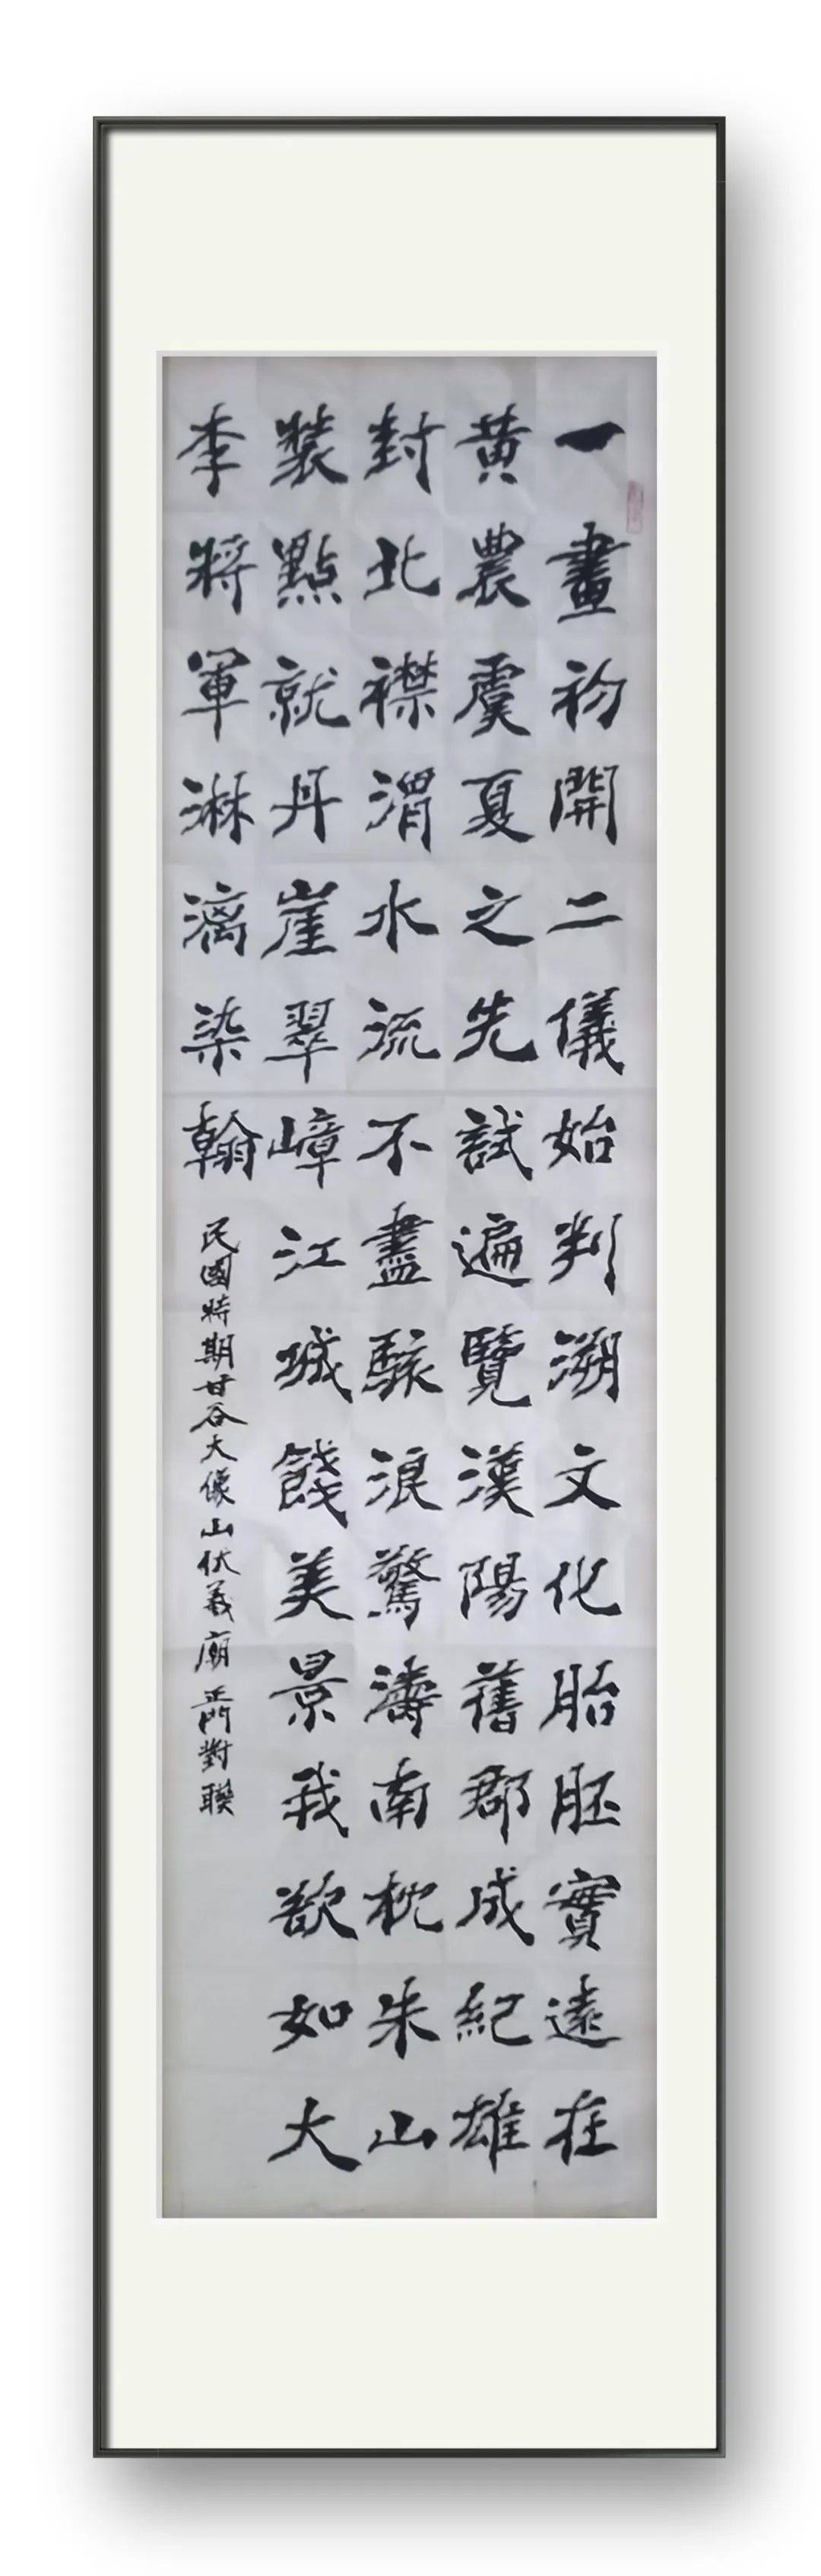 一畫初開二儀始判溯文化胎胚實遠在
黃農虞夏之先試遍覽漢陽舊郡成紀雄
封北襟渭水流不盡駭浪驚濤南枕朱山
裝點就丹崖翠嶂江城餞美景我欲如大
李將軍淋漓染翰
民國時期甘谷大像山伏羲廟正門對聯